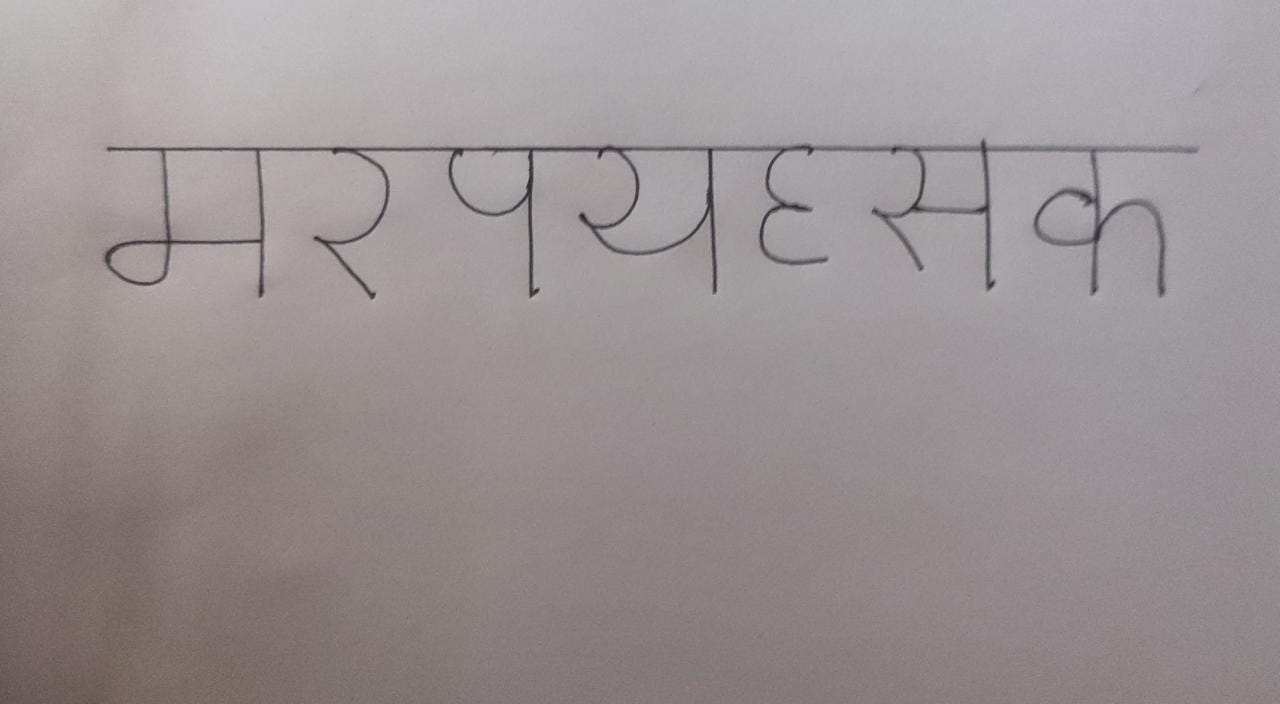 मरपय६सक